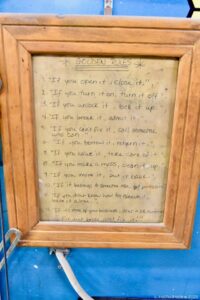 GOLDEN RULES
1. "If you open it, close it."
2. "If you turn it on, turn it off."
3. "If you unlock it, lock it up."
4. "If you break it, admit it."
5. "If you can't fix it, call someone who can."
6. "If you borrow it, return it."
7. "If you value it, take care of it."
8. "If you make a mess, clean it up."
9. "If you move it, put it back."
10. "If it belongs to someone else, get
11. "If you don't know how to operate it, leave it alone."
12. "If it's none of your business, don't